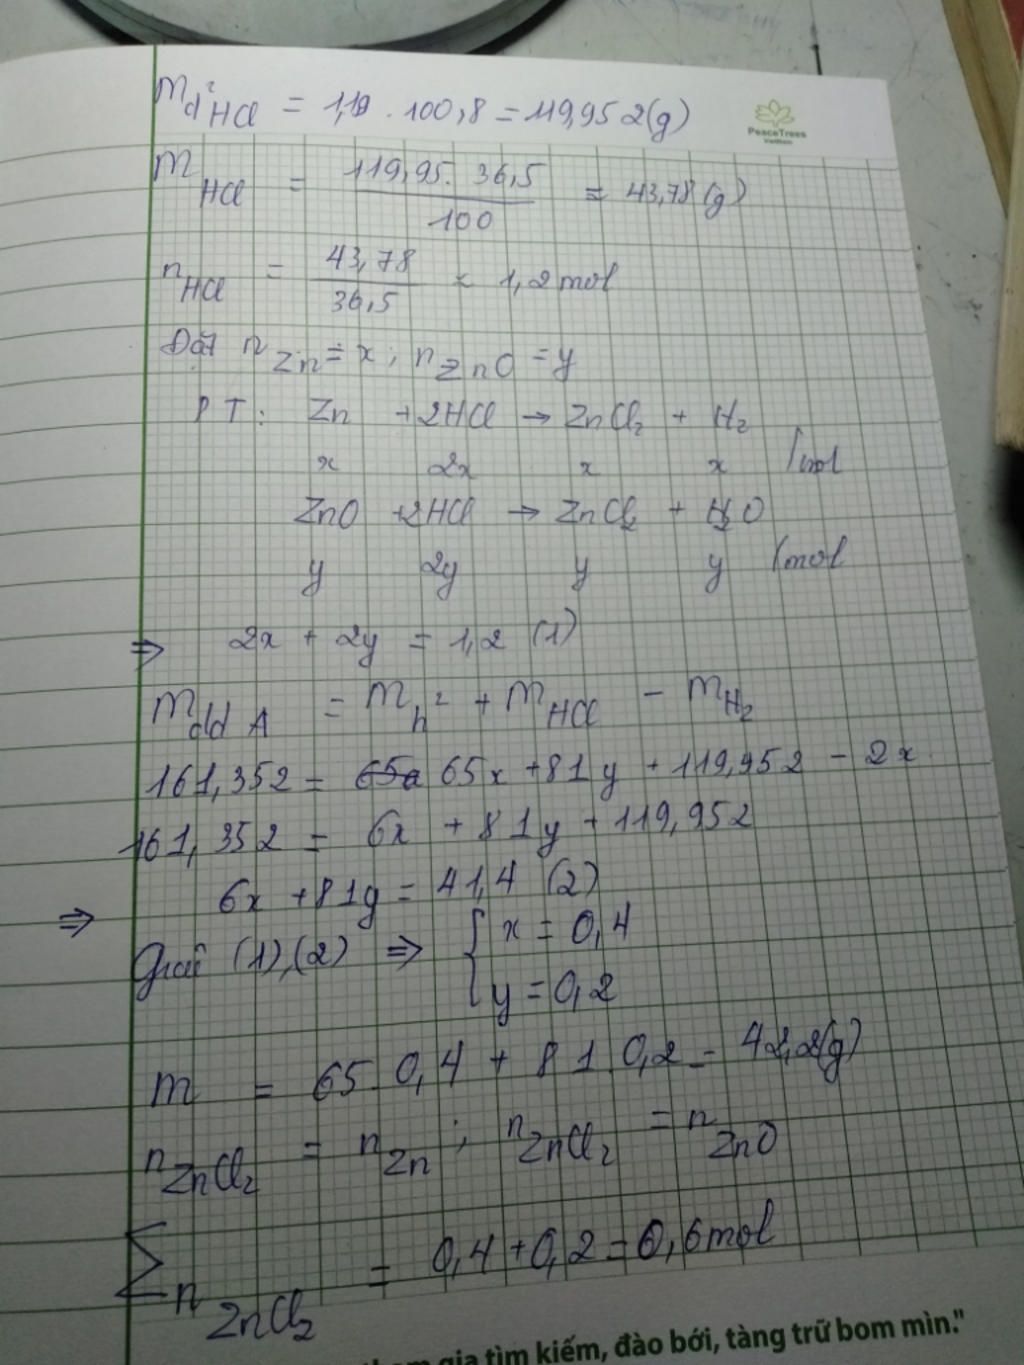 m d² HCl = 1,19 . 100,8 = 119,952(g)
PeaceTrees
VietNam
m HCl = 119,95. 36,5 / 100 = 43,78(g)
n HCl = 43,78 / 36,5 = 1,2 mol
Đặt n Zn = x ; n ZnO = y
PT: Zn + 2HCl → ZnCl₂ + H₂
x 2x x x /mol
ZnO + 2HCl → ZnCl₂ + H₂O
y 2y y y /mol
⇒ 2x + 2y = 1,2 (1)
m dd A = m h² + m HCl − m H₂
161,352 = 65x + 81y + 119,952 − 2x
161,352 = 6x + 81y + 119,952
⇒ 6x + 81y = 41,4 (2)
Giải (1),(2) ⇒ { x = 0,4
y = 0,2
m = 65. 0,4 + 81. 0,2 = 42,2(g)
n ZnCl₂ = n Zn ; n ZnCl₂ = n ZnO
Σ n ZnCl₂ = 0,4 + 0,2 = 0,6 mol
gia tìm kiếm, đào bới, tàng trữ bom mìn."